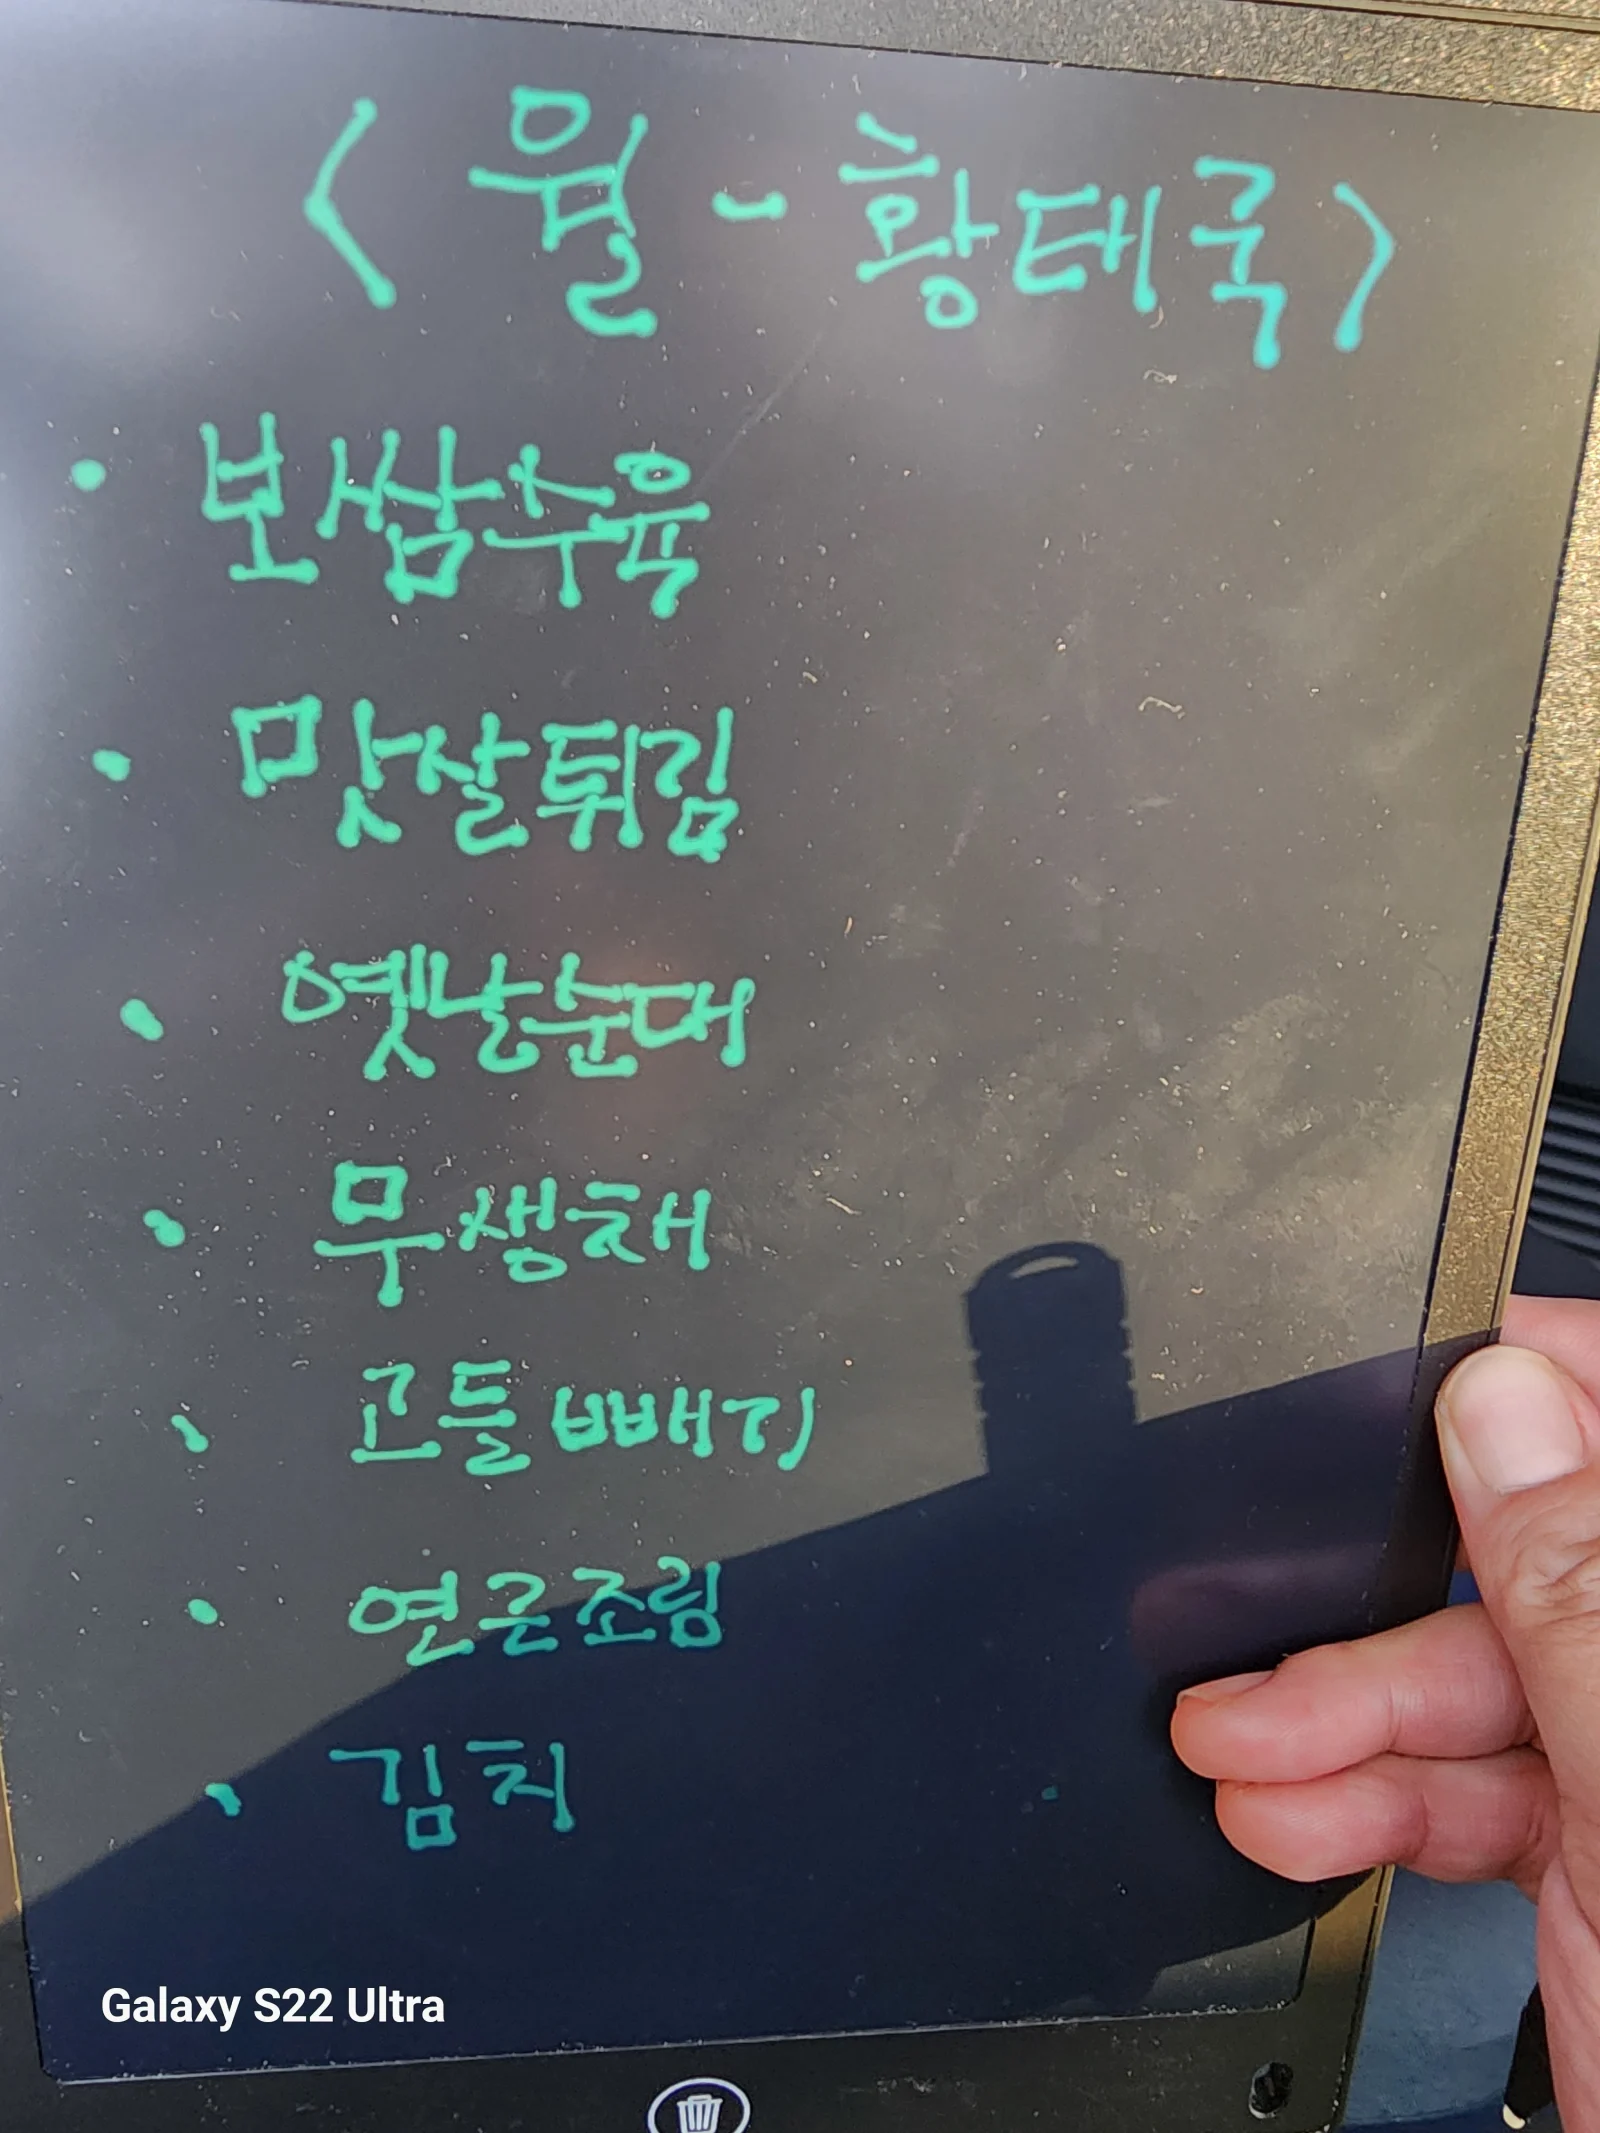 <월-황태국>
• 보쌈수육
• 맛살튀김
• 옛날순대
• 무생채
• 고들빼기
• 연근조림
• 김치
Galaxy S22 Ultra